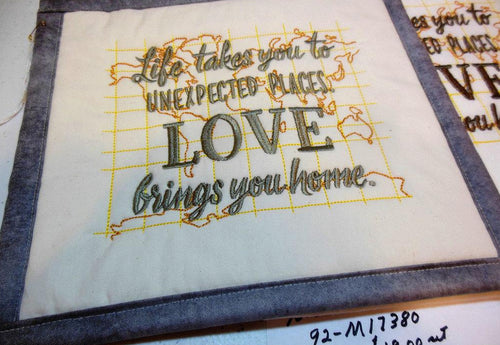 Life takes you to
UNEXPECTED PLACES.
LOVE
brings you home.
es you to
ED PLACES.
VE
you h
92-M17380